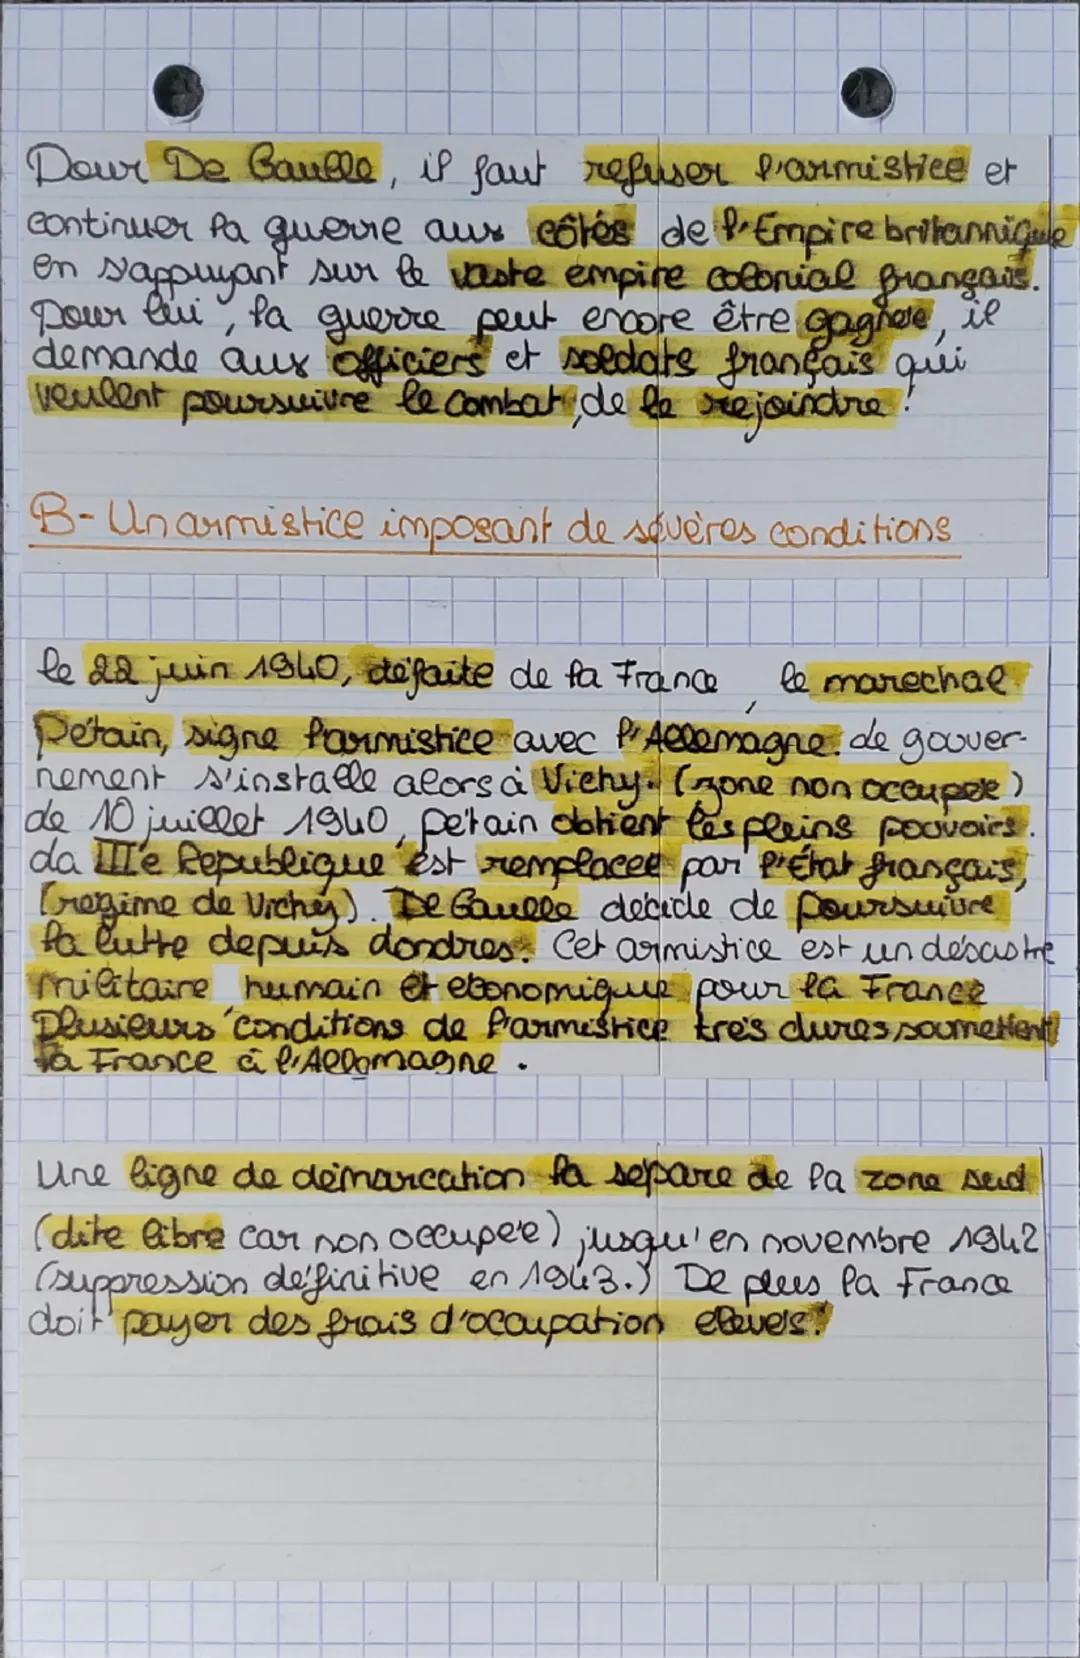 Pour De Gaulle, il faut refuser l'armistice et
continuer la guerre aux côtés de l'Empire britannique
en s'appuyant sur le vaste empire colonial français.
Pour lui, la guerre peut encore être gagnée, il
demande aux officiers et soldats français qui
veulent poursuivre le combat, de le rejoindre.
B- Un armistice imposant de sévères conditions
le 22 juin 1940, défaite de la France, le marechal
Pétain, signe l'armistice avec l'Allemagne. Le gouver-
nement s'installe alors à Vichy. (zone non occupée)
Le 10 juillet 1940, Pétain obtient les pleins pouvoirs.
La IIIe République est remplacée par l'État français,
(régime de Vichy). De Gaulle décide de poursuivre
la lutte depuis Londres. Cet armistice est un désastre
militaire humain et économique pour la France
Plusieurs conditions de l'armistice très dures, soumettent
la France à l'Allemagne.
Une ligne de démarcation la sépare de la zone sud
(dite libre car non occupée) jusqu'en novembre 1942
(suppression définitive en 1943.) De plus, la France
doit payer des frais d'occupation élevés.